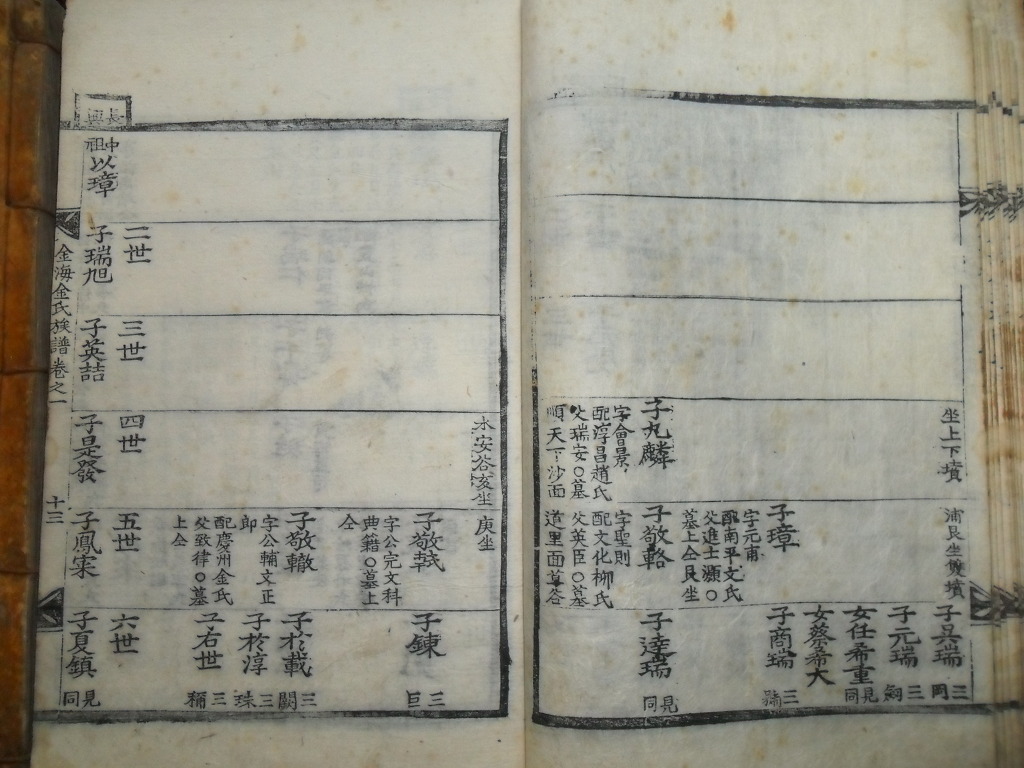 坐上下墳
子九麟
字會景
配淳昌趙氏
父瑞安○墓
順天下沙面
浦艮坐雙墳
子璋
字元甫
配南平文氏
父進士灝○
墓上仝艮坐
子敬輅
字聖則
配文化柳氏
父英臣○墓
道里面
子元瑞
三
女任希重
見同
女蔡希大
子商瑞
三
子達瑞
見同
長興
中祖
以璋
二世
子瑞旭
三世
子英喆
水安谷
坐
四世
子是發
庚坐
子敬軾
字公完文科
典籍○墓上
仝
子敬轍
字公輔文正
郎
配慶州金氏
父致律○墓
上仝
五世
子鳳寀
子鍊
三巨
子於載
三闕
子於淳
三珠
子右世
三稱
六世
子夏鎮
見同
金海金氏族譜卷之一
十三